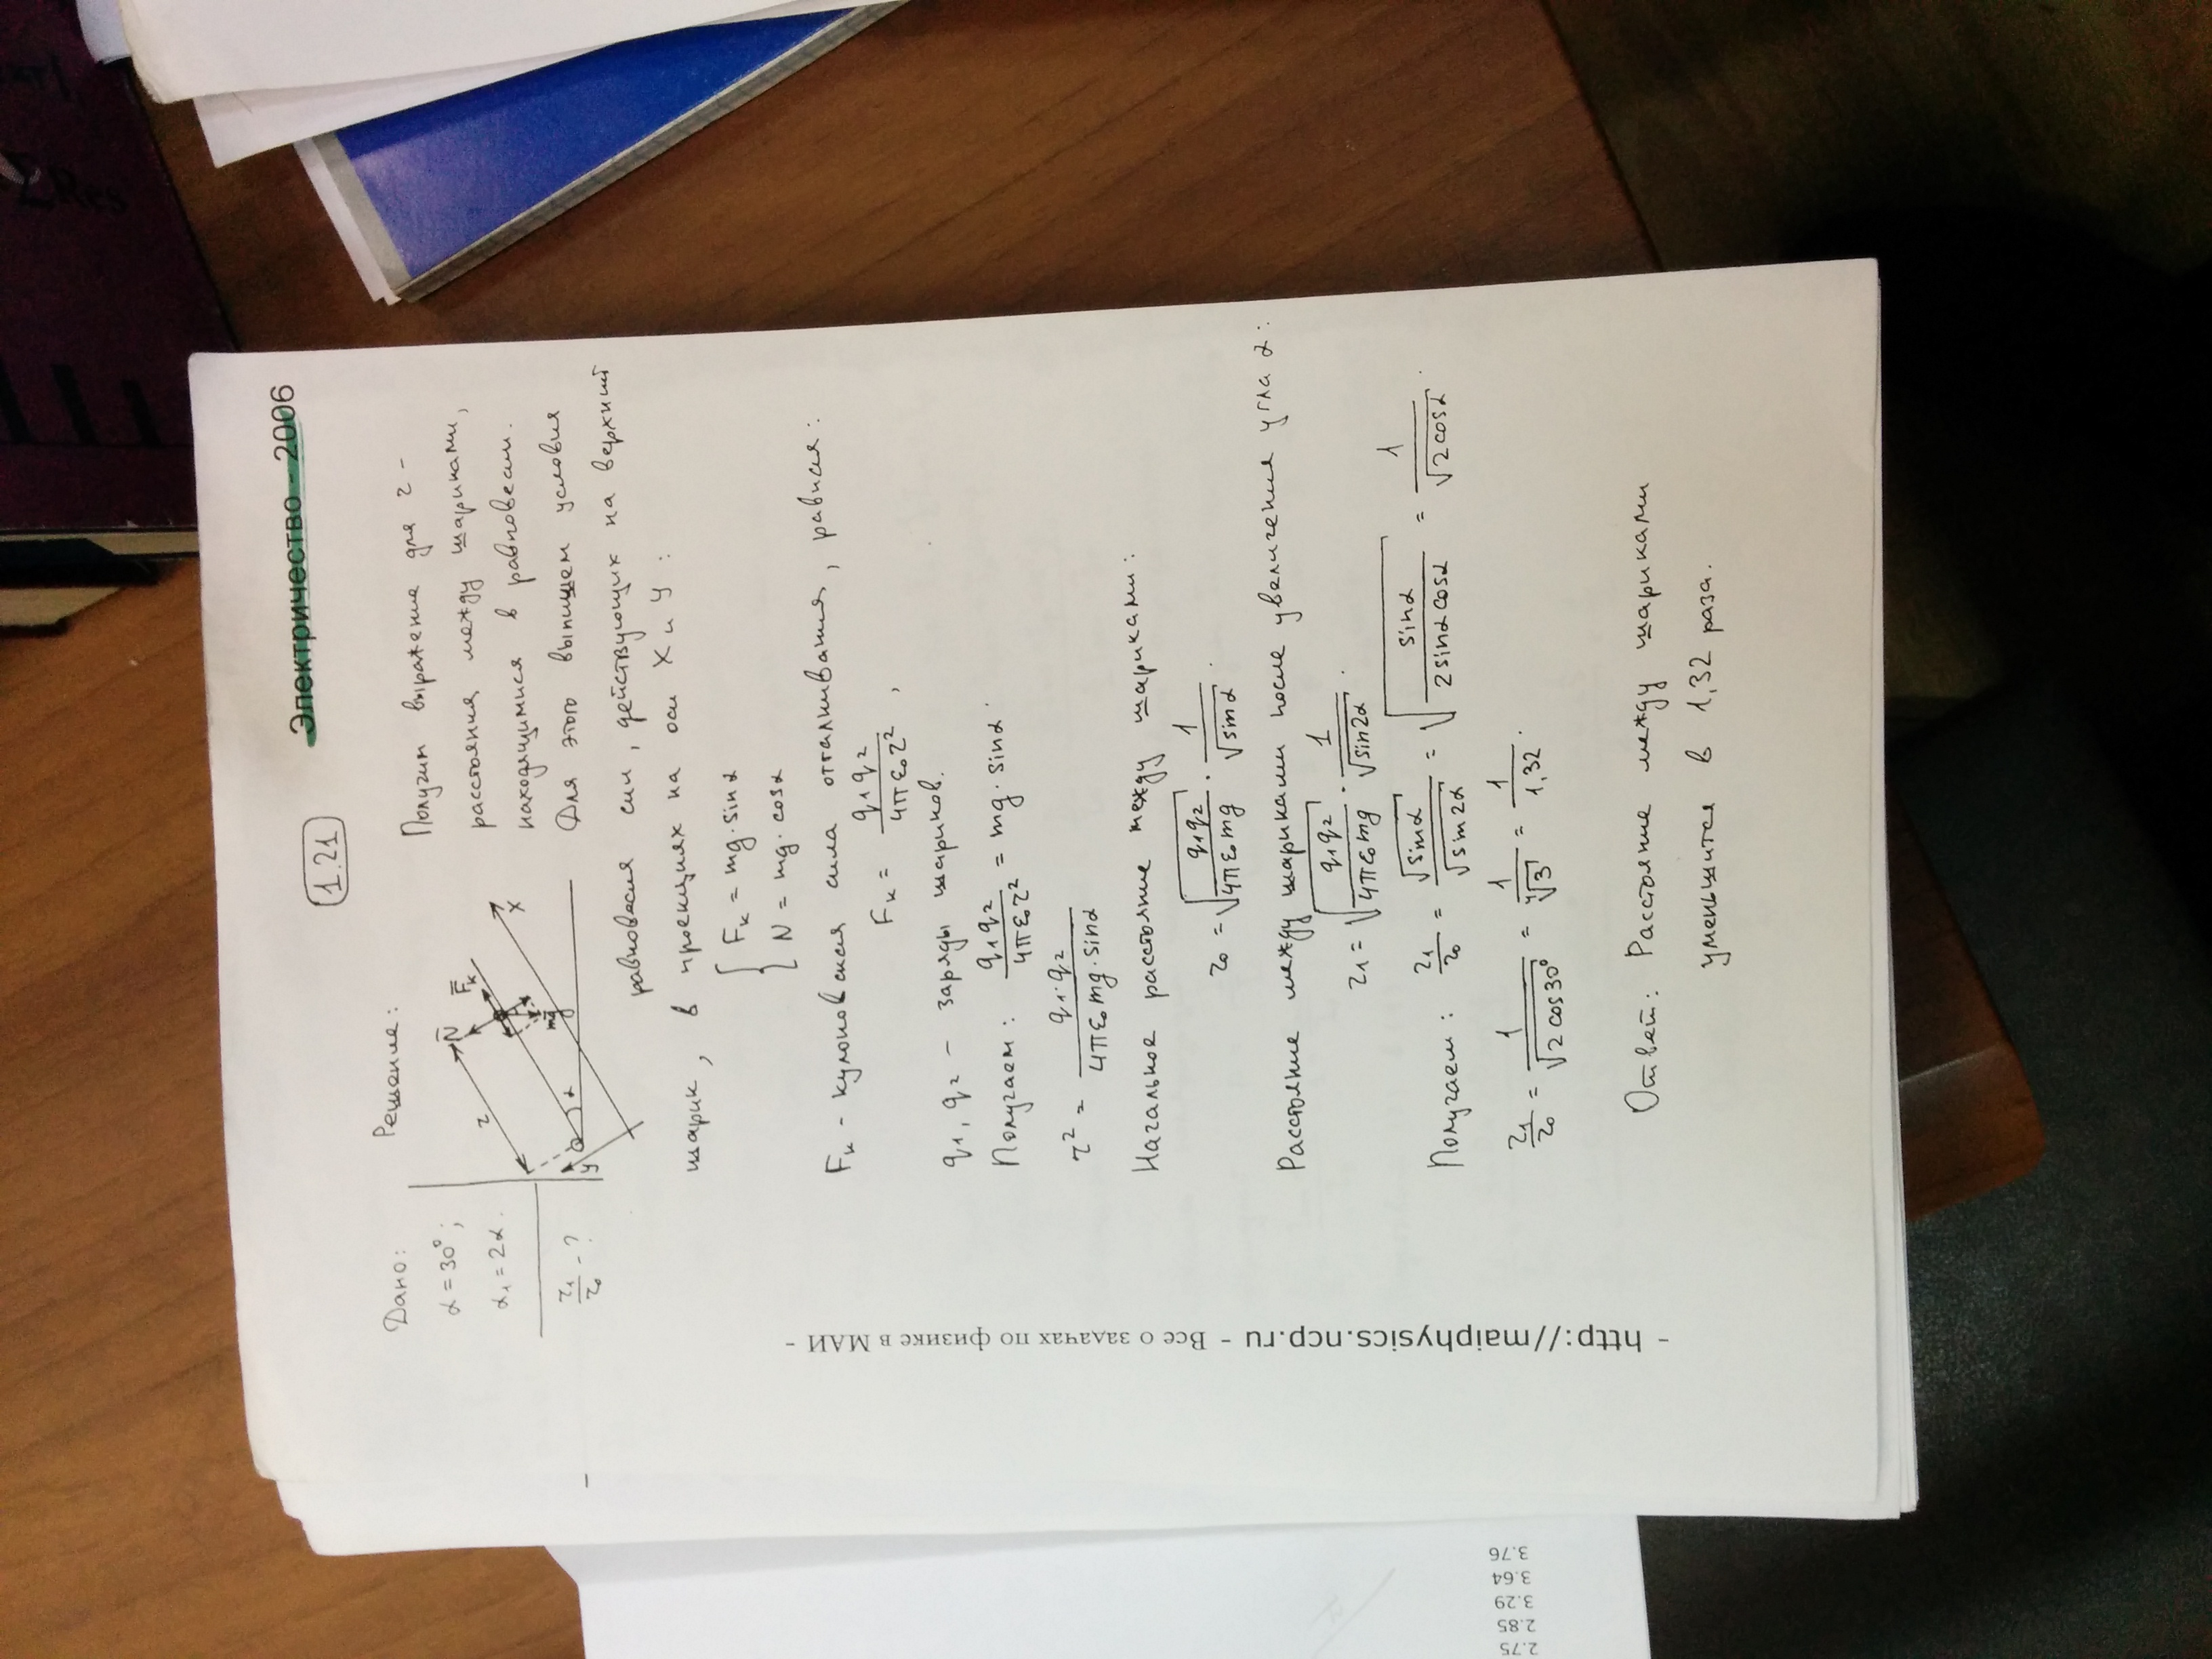 Электричество - 2006
1.21
Дано:
α = 30°;
α₁ = 2α.
r₁/r₀ - ?
Решение:
r
N̄
F̄к
mḡ
α
X
y
Получим выражение для r -
расстояния между шариками,
находящимися в равновесии.
Для этого выпишем условия
равновесия сил, действующих на верхний
шарик, в проекциях на оси X и y:
{ Fк = mg·sinα
{ N = mg·cosα
Fк - кулоновская сила отталкивания, равная:
Fк = q₁q₂/4πε₀r²,
q₁, q₂ - заряды шариков.
Получаем: q₁q₂/4πε₀r² = mg·sinα.
r² = q₁·q₂/4πε₀mg·sinα
Начальное расстояние между шариками:
r₀ = √(q₁q₂/4πε₀mg) · 1/√sinα.
Расстояние между шариками после увеличения угла α:
r₁ = √(q₁q₂/4πε₀mg) · 1/√sin2α.
Получаем: r₁/r₀ = √sinα/√sin2α = √(sinα/2sinαcosα) = 1/√2cosα.
r₁/r₀ = 1/√2cos30° = 1/⁴√3 = 1/1,32.
Ответ: Расстояние между шариками
уменьшится в 1,32 раза.
- http://maiphysics.ncp.ru - Все о задачах по физике в МАИ -
2.75
2.85
3.29
3.64
3.76
ΣRes